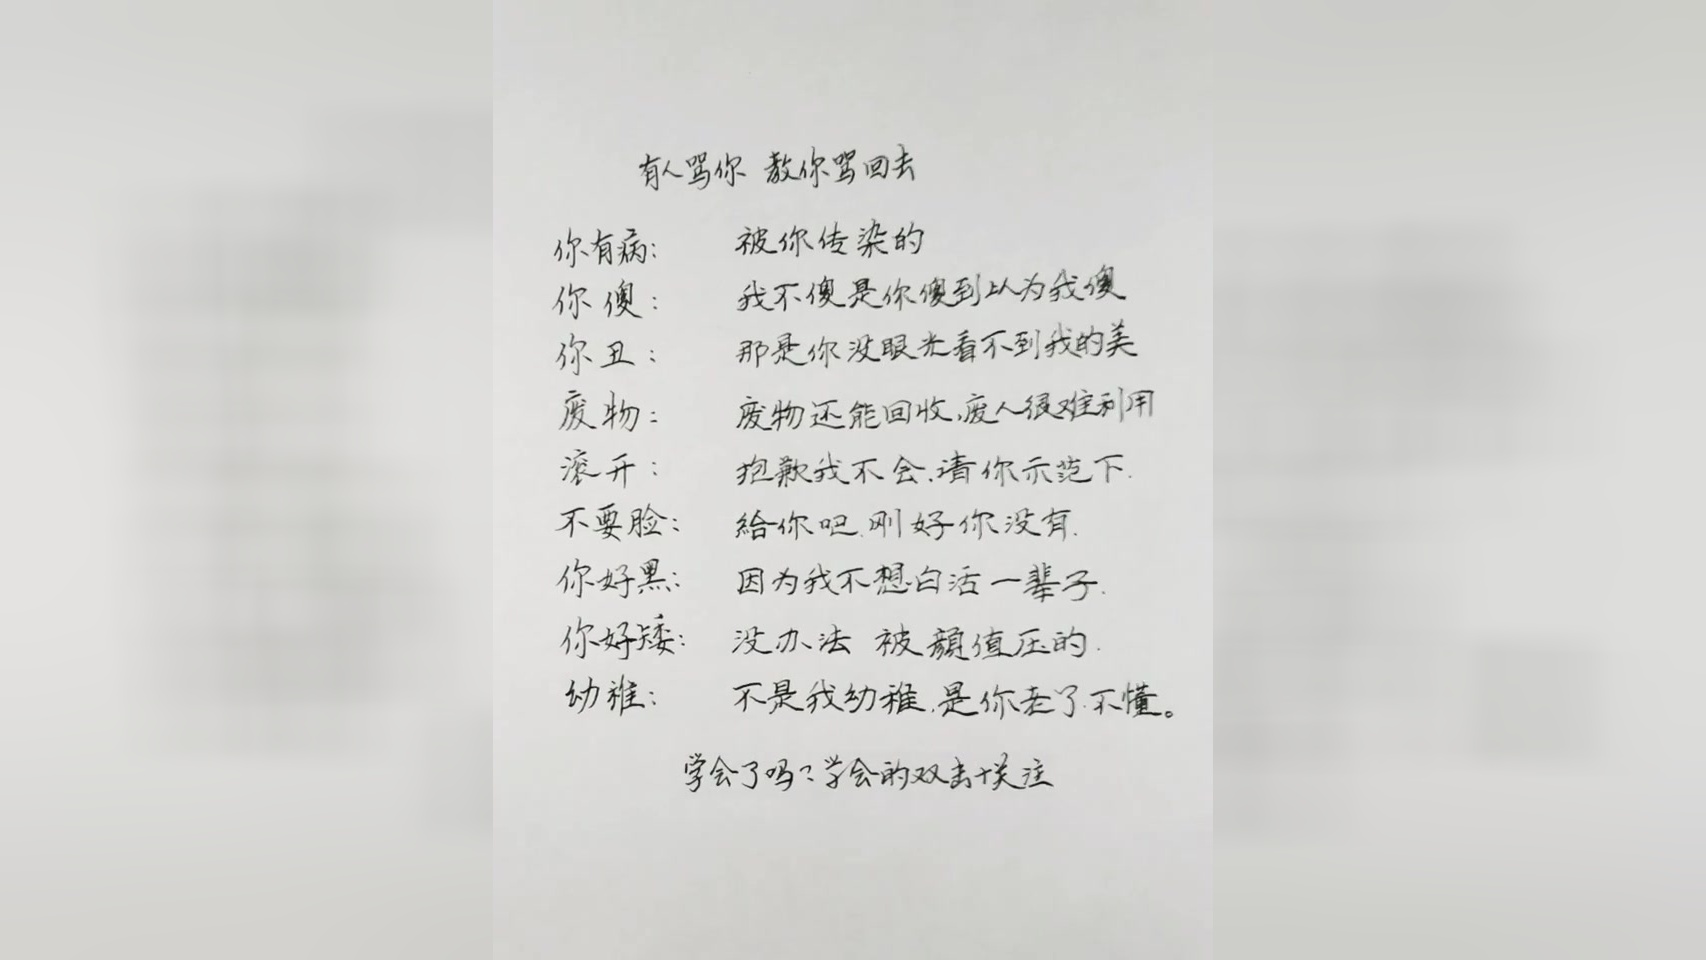 有人骂你 教你骂回去
你有病： 被你传染的
你傻： 我不傻是你傻到以为我傻
你丑： 那是你没眼光看不到我的美
废物： 废物还能回收，废人很难利用
滚开： 抱歉我不会，请你示范下.
不要脸： 给你吧，刚好你没有.
你好黑： 因为我不想白活一辈子.
你好矮： 没办法 被颜值压的.
幼稚： 不是我幼稚，是你老了不懂。
学会了吗？学会的双击+关注